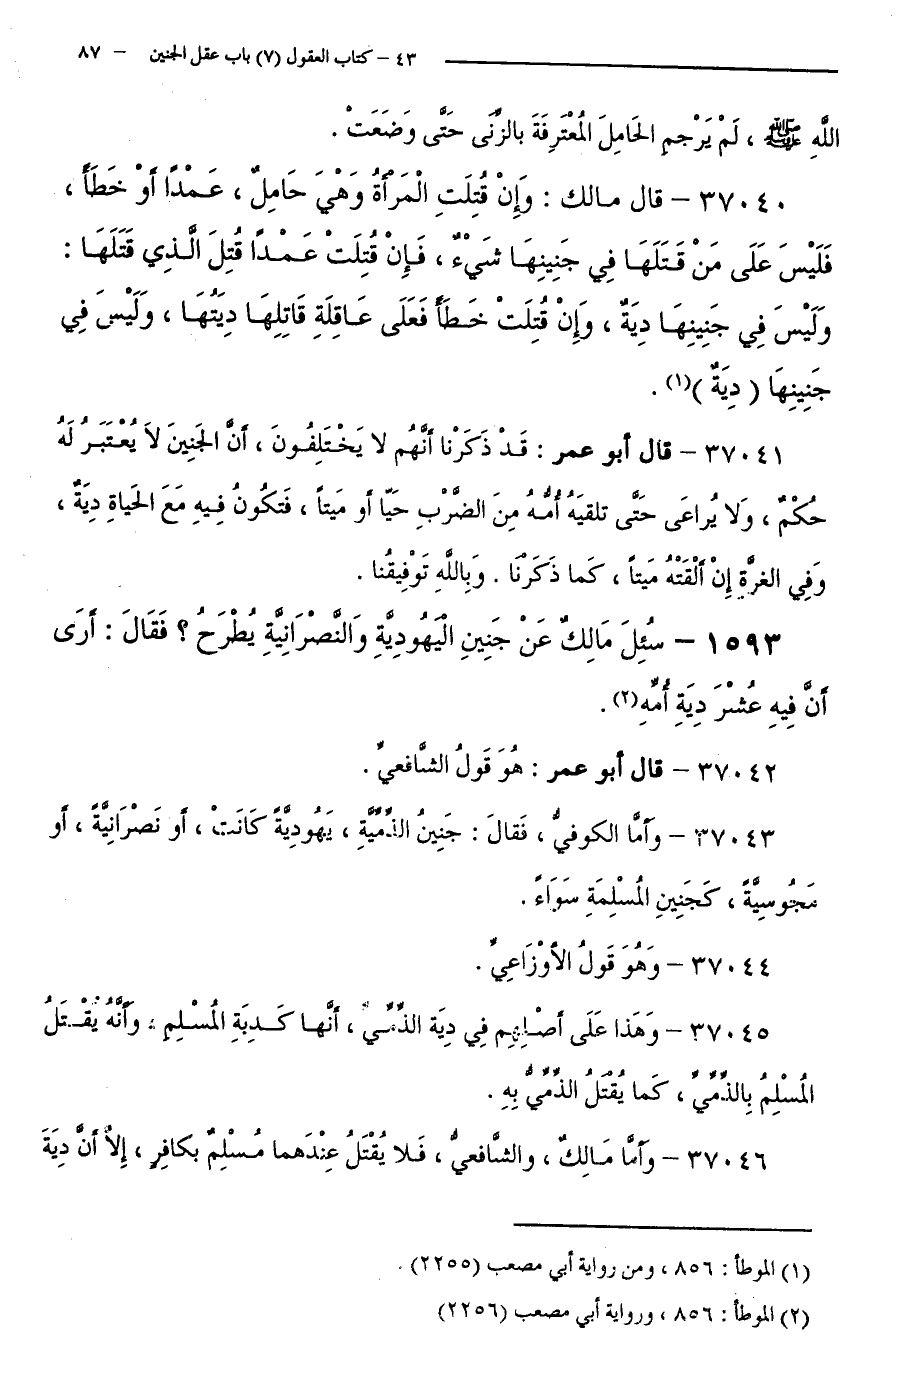 ٤٣ - كتاب العقول (٧) باب عقل الجنين - ٨٧
اللَّهِ ﷺ ، لَمْ يَرْجمِ الحَامِلَ المُعْتَرِفَةَ بالزِّنَى حَتَّى وَضَعَتْ .
٣٧٠٤٠ - قال مالك : وَإِنْ قُتِلَتِ الْمَرْأَةُ وَهْيَ حَامِلٌ ، عَمْدًا أَوْ خَطَأً ،
فَلَيْسَ عَلَى مَنْ قَتَلَهَا فِي جَنِينِهَا شَيْءٌ ، فَإِنْ قُتِلَتْ عَمْدًا قُتِلَ الَّذِي قَتَلَهَا :
وَلَيْسَ فِي جَنِينِهَا دِيَةٌ ، وَإِنْ قُتِلَتْ خَطَأً فَعَلَى عَاقِلَةِ قَاتِلِهَا دِيَتُهَا ، وَلَيْسَ فِي
جَنِينِهَا ( دِيَةٌ )(١) .
٣٧٠٤١ - قال أبو عمر : قَدْ ذَكَرْنا أنَّهُم لا يَخْتَلِفُونَ ، أَنَّ الجَنِينَ لاَ يُعْتَبَرُ لَهُ
حُكْمٌ ، وَلا يُراعَى حَتَّى تلقيَهُ أُمُّهُ مِنَ الضَّرْبِ حَيّا أو مَيتاً ، فَتَكُونُ فِيهِ مَعَ الحَياةِ دِيَةٌ ،
وَفِي الغرَّةِ إِنْ أَلْقَتْهُ مَيتاً ، كَما ذَكَرْنَا . وَبِاللَّهِ تَوْفِيقُنا .
١٥٩٣ - سُئِلَ مَالِكٌ عَنْ جَنِينِ الْيَهُودِيَّةِ وَالنَّصْرَانِيَّةِ يُطْرَحُ ؟ فَقَالَ : أَرَى
أَنَّ فِيهِ عُشْرَ دِيَةِ أُمِّهِ(٢) .
٣٧٠٤٢ - قال أبو عمر : هُوَ قَولُ الشَّافعيِّ .
٣٧٠٤٣ - وأمَّا الكوفيُّ ، فَقالَ : جَنِينُ الذِّمِّيَّةِ ، يَهُودِيَّةً كَانَتْ ، أو نَصْرَانِيَّةً ، أو
مَجُوسِيَّةً ، كَجَنِينِ المُسْلِمَةِ سَوَاءً .
٣٧٠٤٤ - وَهُوَ قَولُ الأَوْزَاعِيِّ .
٣٧٠٤٥ - وَهَذا عَلَى أصْلِهِم فِي دِيَةِ الذِّمِّيِّ ، أَنَّها كَدِيَةِ المُسْلِمِ ، وَأَنَّهُ يُقْتَلُ
المُسْلِمُ بِالذِّمِّيِّ ، كَما يُقْتَلُ الذِّمِّيُّ بِهِ .
٣٧٠٤٦ - وأمَّا مَالِكٌ ، والشَّافعيُّ ، فَلا يُقْتَلُ عِنْدَهما مُسْلِمٌ بكافِرٍ ، إِلاَّ أنَّ دِيَةَ
(١) الموطأ : ٨٥٦ ، ومن رواية أبي مصعب (٢٢٥٥) .
(٢) الموطأ : ٨٥٦ ، ورواية أبي مصعب (٢٢٥٦)